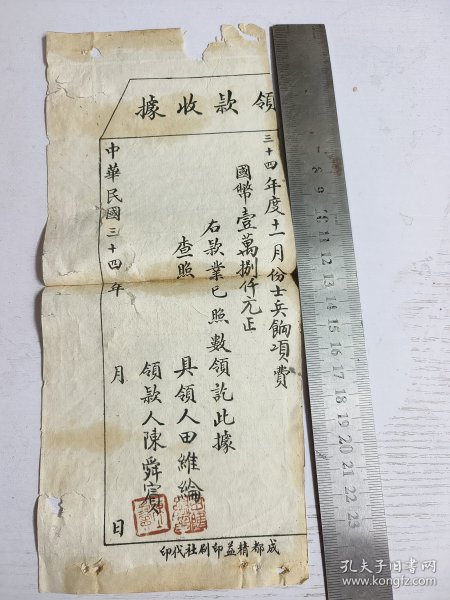 領款收據
三十四年度十一月份士兵餉項費
國幣壹萬捌仟元正
右款業已照數領訖此據
查照
具領人田維綸
領款人陳舜賓
中華民國三十四年 月 日
成都精益印刷社代印
孔夫子旧书网